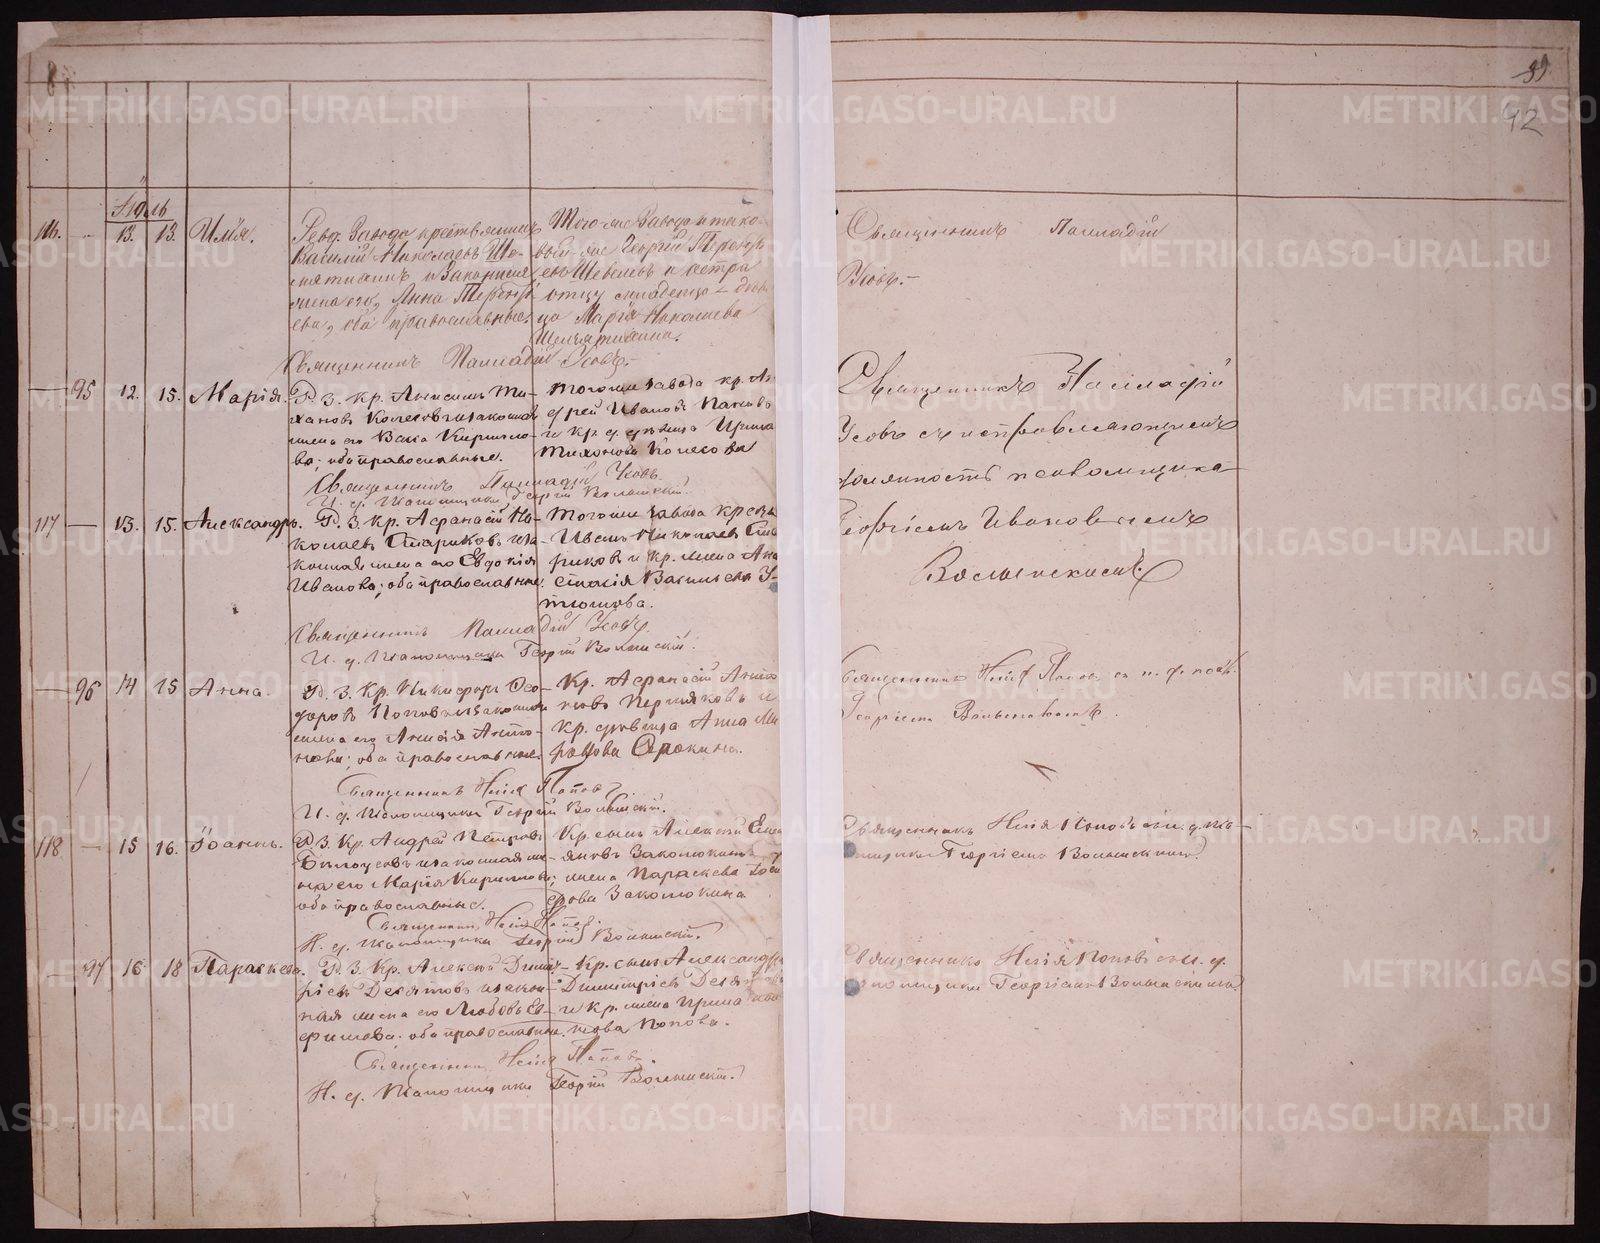 39
42
Іюль
116. - 13. 13. Илія.
Ревд. Завода крестьянинъ
Василій Николаевъ Ще-
жена его, Анна Терентьева
ева, оба православные.
Того же Завода
Георгій Терентьевъ
отцу младенца
ца Марія Николаева
Священникъ Палладій Усовъ.
Священникъ Палладій
Усовъ.
— 95 12. 15. Марія.
Р. З. кр. Анисимъ Ти-
хановъ Колесовъ и законная
жена его Васса Кирилло-
ва; оба православные.
Тогоже завода кр. Ан
дрей Ивановъ Пановъ
и кр. дѣвица Ирина
Тихонова Колесова
Священникъ Палладій Усовъ.
И. д. псаломщика Георгій Волынскій.
Священникъ Палладій
Усовъ съ исправляющимъ
должность псаломщика
Георгіемъ Ивановичемъ
Волынскимъ.
117 — 13. 15. Александръ.
Р. З. кр. Афанасій Ни-
колаевъ Стариковъ и за-
конная жена его Евдокія
Иванова; оба православные.
Тогоже завода кр. сынъ
Иванъ Николаевъ Ста
риковъ и кр. жена Ана
стасія Васильева У-
тюмова.
Священникъ Палладій Усовъ.
И. д. псаломщика Георгій Волынскій.
— 96 14 15 Анна.
Р. З. Кр. Никифоръ Ѳео-
доровъ Поповъ и законная
жена его Анисія Анто-
нова; оба православные.
Кр. Афанасій Анто
новъ Пермяковъ и
кр. дѣвица Анна Ми
ронова Сорокина.
Священникъ Илія Поповъ.
И. д. псаломщика Георгій Волынскій.
Священникъ Илія Поповъ съ и. д. псал.
Георгіемъ Волынскимъ.
118 — 15 16. Іоаннъ.
Р. З. Кр. Андрей Петровъ
Бѣлоусовъ и законная же-
на его Марія Кириллова;
оба православные.
Кр. сынъ Алексій Емел
яновъ Заколюкинъ
жена Параскева
Заколюкина
Священникъ Илія Поповъ.
И. д. псаломщика Георгій Волынскій.
Священникъ Илія Поповъ съ и. д. пса-
ломщика Георгіемъ Волынскимъ.
— 97 16 18 Параскева.
Р. З. Кр. Алексій Димит-
ріевъ Десятовъ и закон-
ная жена его Любовь Ев-
фимова; оба православные.
Кр. сынъ Александръ
Димитріевъ Десятовъ
и кр. жена Ирина
нова Попова.
Священникъ Илія Поповъ.
И. д. Псаломщика Георгій Волынскій.
Священникъ Илія Поповъ съ и. д.
псаломщика Георгіемъ Волынскимъ
METRIKI.GASO-URAL.RU